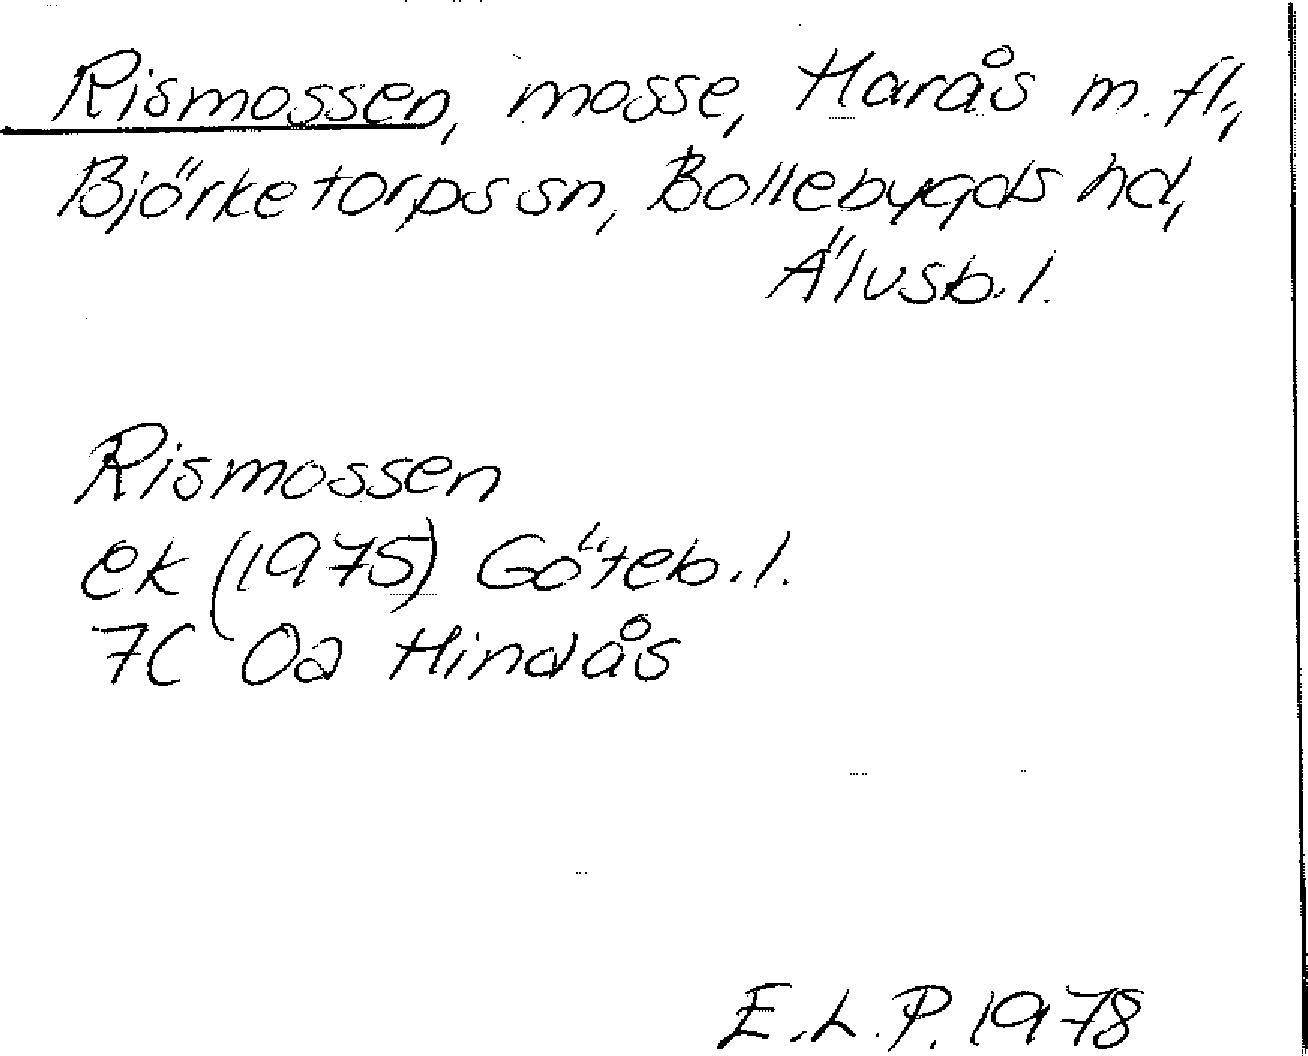 Rismossen, mosse, Harås m. fl.,
Björketorps sn, Bollebygds hd,
Älvsb. l.
Rismossen
ek (1975) Göteb. l.
7C 0a Hindås
E. L. P. 1978